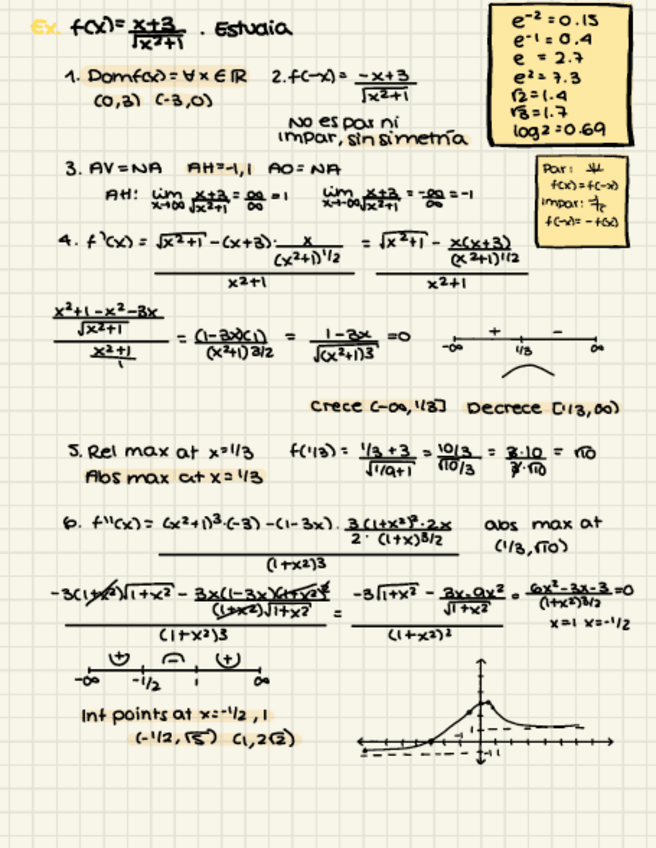 Ex. f(x) = x+3/√x²+1 . Estudia
e⁻² = 0.15
e⁻¹ = 0.4
e = 2.7
e² = 7.3
√2 = 1.4
√3 = 1.7
log2 = 0.69
1. Domf(x) = ∀ x ∈ ℝ
(0,3) (-3,0)
2. f(-x) = -x+3/√x²+1
No es par ni
impar, sin simetría
3. AV = NA AH = -1,1 AO = NA
AH: lim x→∞ x+3/√x²+1 = ∞/∞ = 1 lim x→-∞ x+3/√x²+1 = -∞/∞ = -1
Par:
f(x) = f(-x)
Impar:
f(-x) = -f(x)
4. f'(x) = √x²+1 - (x+3) · x/(x²+1)^1/2 / x²+1 = √x²+1 - x(x+3)/(x²+1)^1/2 / x²+1
x²+1-x²-3x/√x²+1 / x²+1/1 = (1-3x)(1)/(x²+1)^3/2 = 1-3x/√(x²+1)³ = 0
+ -
-∞ 1/3 ∞
Crece (-∞, 1/3] Decrece [1/3, ∞)
5. Rel max at x = 1/3 f(1/3) = 1/3+3/√1/9+1 = 10/3/√10/3 = 3·10/3·√10 = √10
Abs max at x = 1/3
6. f''(x) = (x²+1)³·(-3) - (1-3x) · 3(1+x²)²·2x/2·(1+x)^3/2 / (1+x²)3
abs max at
(1/3, √10)
-3(1+x²)√1+x² - 3x(1-3x)(1+x²)²/(1+x²)√1+x² / (1+x²)3 = -3√1+x² - 3x-9x²/√1+x² / (1+x²)² = 6x²-3x-3/(1+x²)^5/2 = 0
x=1 x=-1/2
+ - +
-∞ -1/2 1 ∞
Inf points at x = -1/2, 1
(-1/2, √5) (1, 2√2)
1
-1